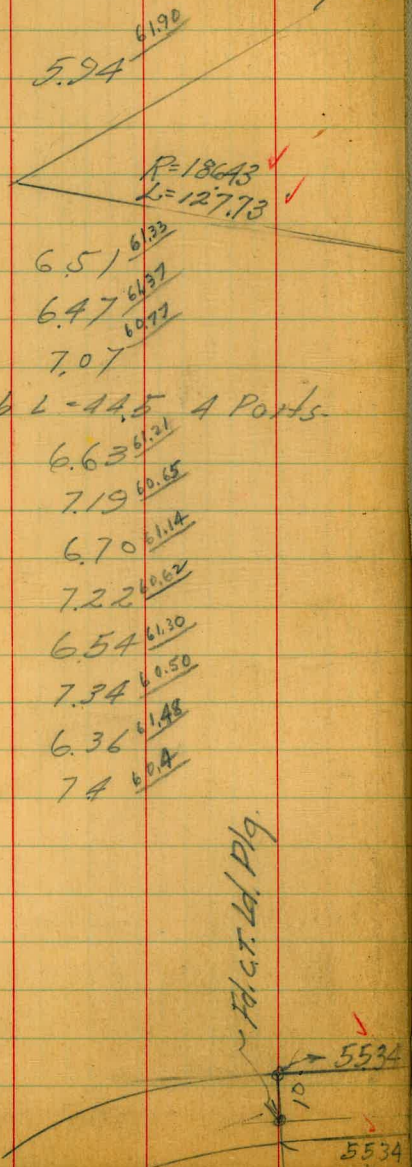 5.94 61.90
R=186.43
L=127.73
6.51 61.33
6.47 61.37
7.07 60.77
L=44.5 4 Parts.
6.63 61.21
7.19 60.65
6.70 61.14
7.22 60.62
6.54 61.30
7.34 60.50
6.36 61.48
7.4 60.4
Fd. C.T. Ld. Plg.
5534
10'
5534